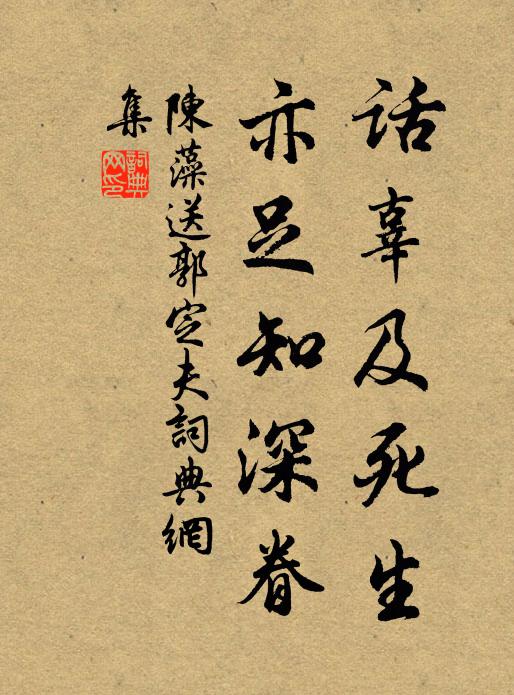 话辜及死生
亦足知深眷
陳藻送郭定夫詞典網
集
詞典
网印